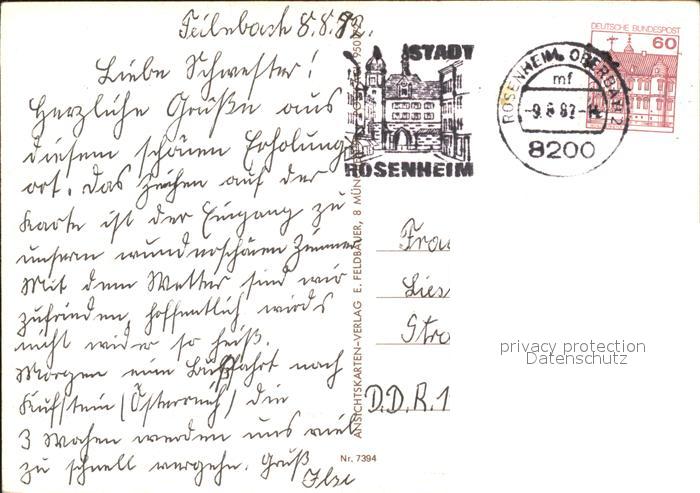 Feilnbach 8.8.82.
Liebe Schwester!
Herzliche Grüße aus
diesem schönen Erholungs
ort. Das Zeichen auf der
Karte ist der Eingang zu
unserm wunderschönen Zimmer
Mit dem Wetter sind wir
zufrieden, hoffentlich wirds
nicht wider so heiß.
Morgen eine Busfahrt nach
Kufstein (Österreich) die
3 Wochen werden uns viel
zu schnell vergehn. Gruß
Ilse
ANSICHTSKARTEN-VERLAG E. FELDBAUER, 8 MÜN
Nr. 7394
STADT
ROSENHEIM
ROSENHEIM, OBERBAY 2
mf
-9.8.82-
8200
DEUTSCHE BUNDESPOST
60
Frau
Lies
Stra
D.D.R. 1
privacy protection
Datenschutz